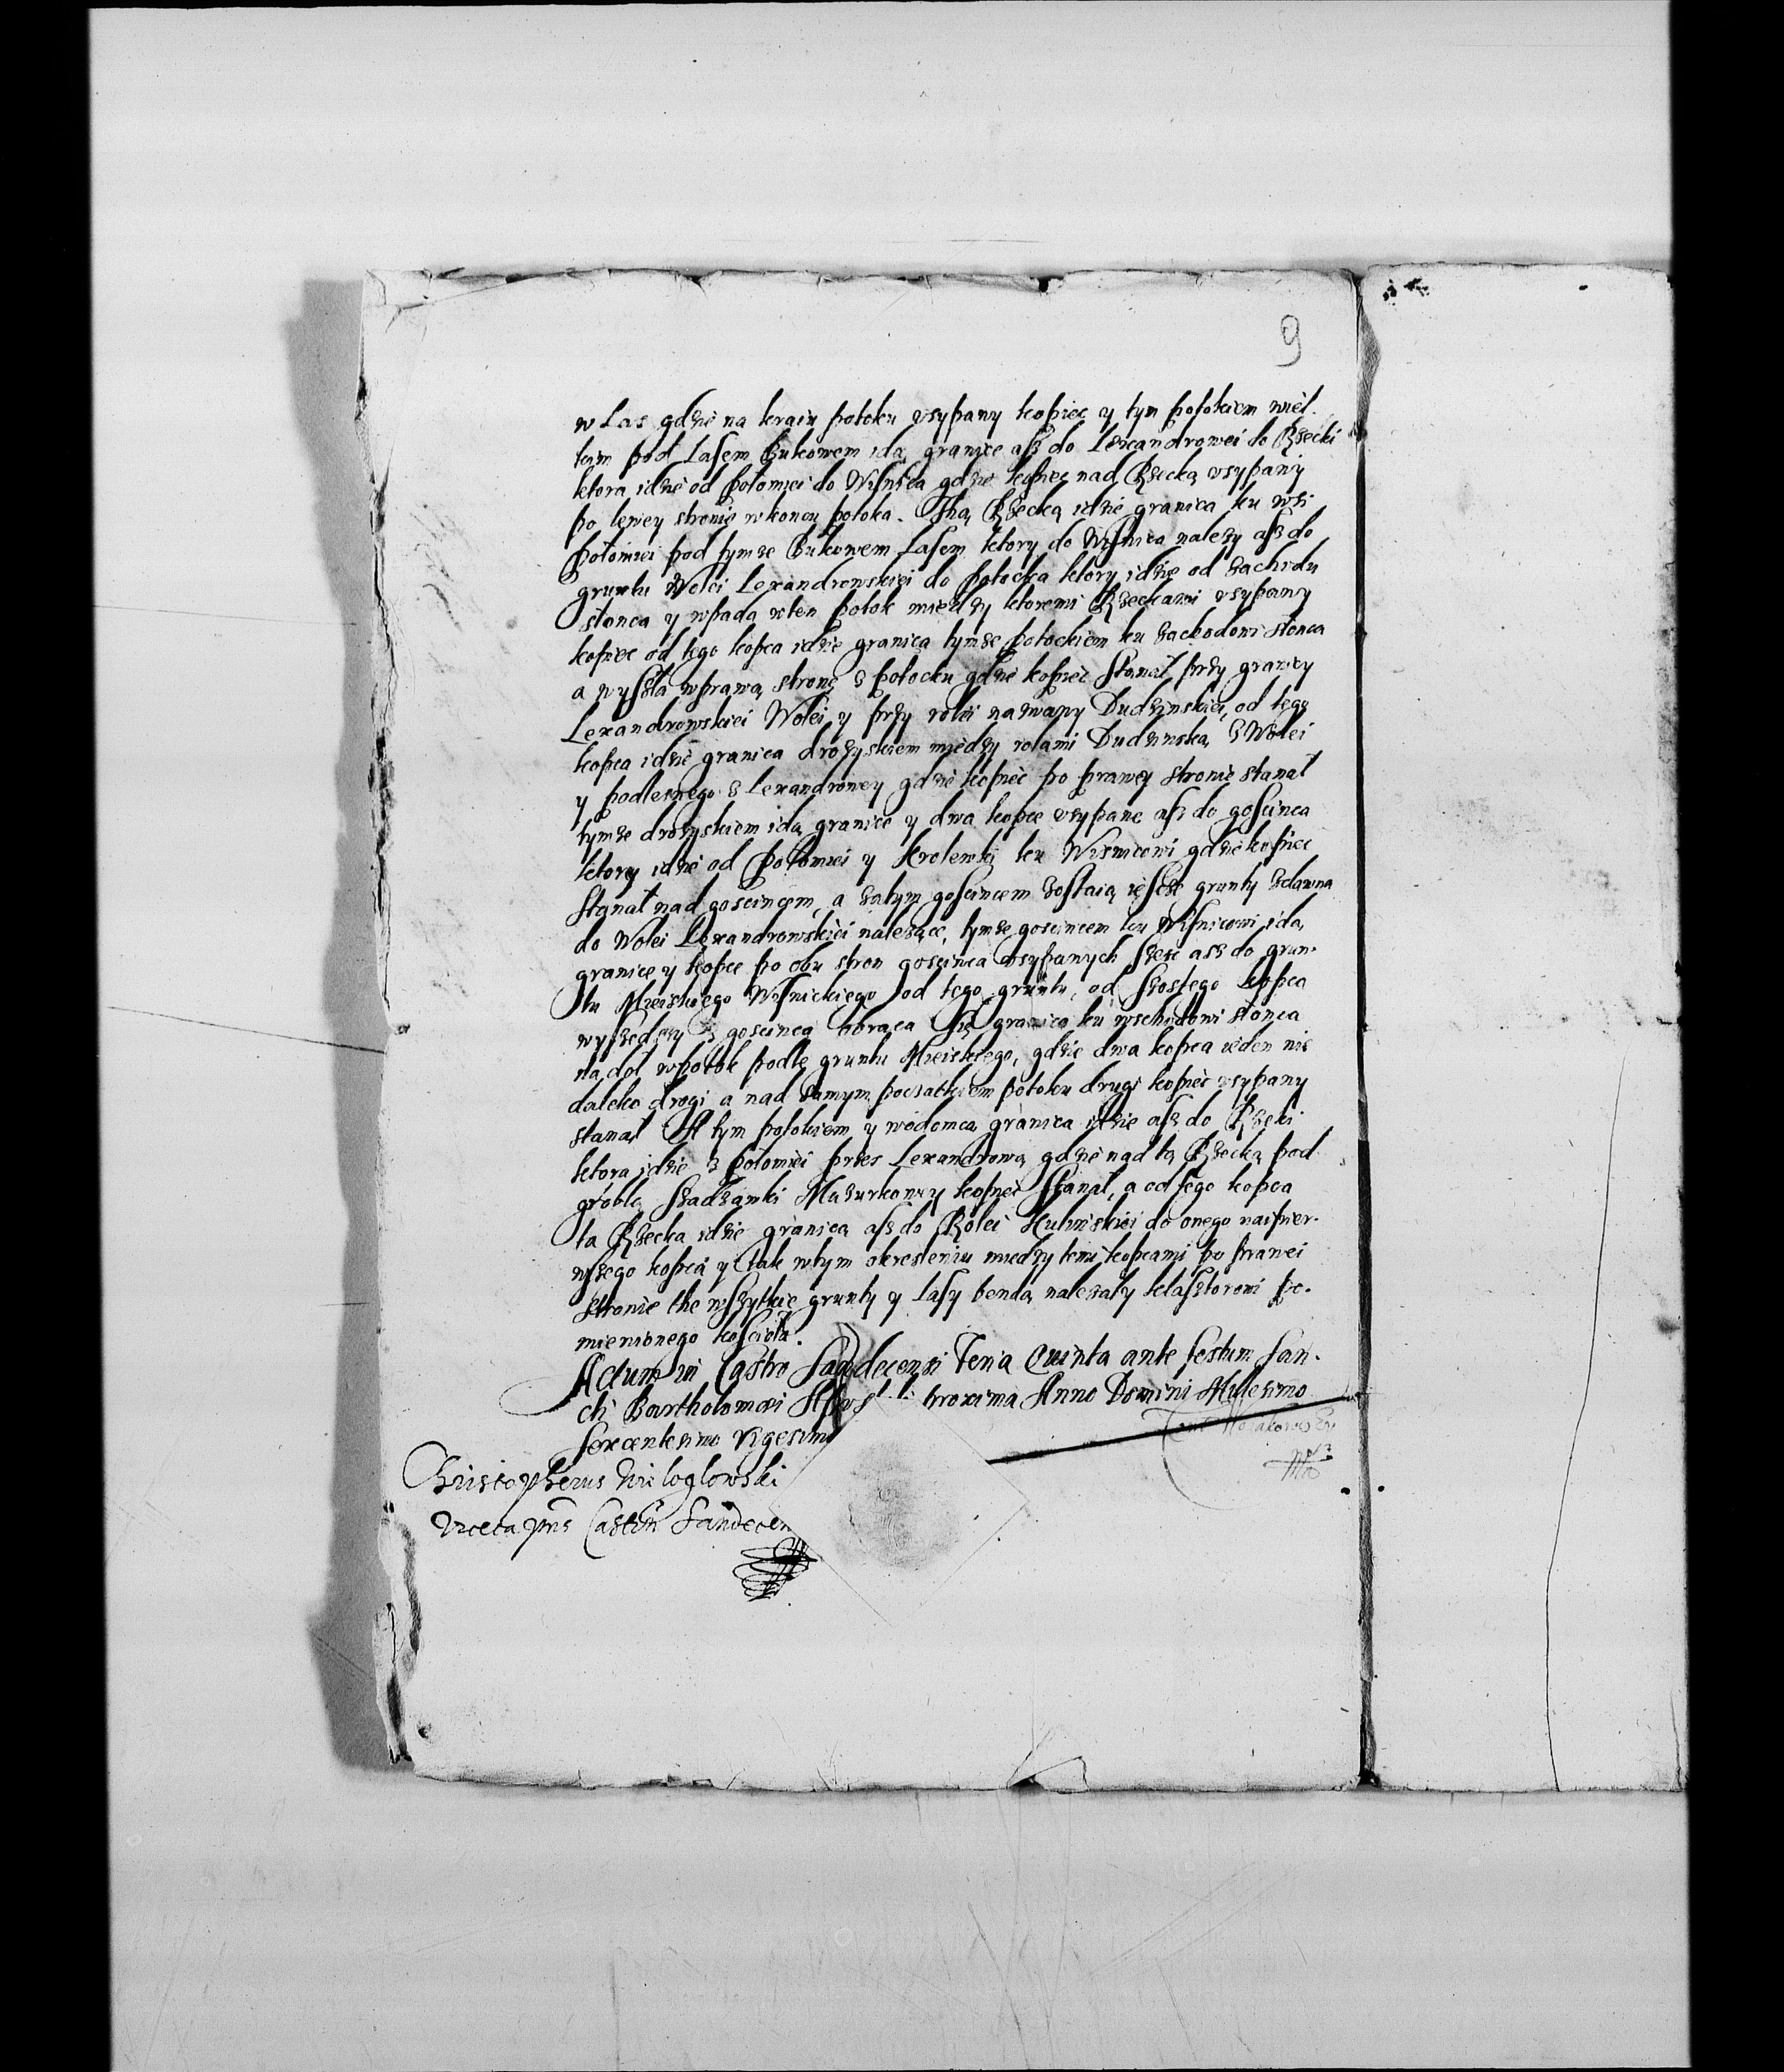 9
w Las gdzie na kraiu potoku vsypany kopiec y tym potokiem wiel-
kim pod Lasem Bukowem ida granice asz do Lexandrowei do Rzecki
ktora idzie od Połomiei do Wisnica gdzie kopiec nad Rzecką vsypany
po lewey stronie w koncu potoka. Thą Rzecką idzie granica ku wsi
Połomiei pod tymze Bukowem Lasem ktory do Wisnica nalezy asz do
gruntu Wolei Lexandrowskiei do Potocka ktory idzie od zachodu
słonca y wpada w ten potok miedzy ktoremi Rzeckami vsypany
kopiec od tego kopca idzie granica tymze potockiem ku zachodowi słonca
a wyszla w prawą stronę z potocku gdzie kopiec stanał przy granicy
Lexandrowskiei Wolei y przy rolei nazwany Dudzinskiei, od tego
kopca idzie granica drozyskiem między rolami Dudzinską z Wolei
y podlesnego z Lexandrowey gdzie kopiec po prawey stronie stanał
tymze drozyskiem ida granice y dwa kopce vsypane asz do goscinca
ktory idzie od Połomiei y Krolewki ku Wisnicowi gdzie kopiec
stanał nad goscincem, a zatym goscincem zostaią iescze grunty zdawna
do Wolei Lexandrowskiei nalezące, tymze goscincem ku Wisnicowi ida
granice y kopce po obu stron goscinca vsypanych szesc asz do grun-
tu Mieiskiego Wisnickiego od tego gruntu, od szostego kopca
wyszedszy z goscinca obraca się granica ku wschodowi słonca
na doł w potok podle gruntu Mieiskiego, gdzie dwa kopca ieden nie
daleko drogi a nad samym początkiem potoku drugi kopiec vsypany
stanał A tym potokiem y wodomcą granica idzie asz do Rzeki
ktora idzie z Połomiei przes Lexandrową gdzie nad tą Rzecką pod
groblą Sadzawki Mazurkowey kopiec stanał, a od tego kopca
ta Rzecka idzie granica asz do Rolei Kulinskiei do onego naipier-
wszego kopca y tak w tym okresleniu miedzy temi kopcami po prawei
stronie the wszytkie grunty y Lasy benda nalezały klasztorowi po-
mienionego kościoła.
Actum in Castro Sandecensi Feria Quinta ante festum San-
cti Bartholomæi Apos proxima Anno Domini Millesimo
sexcentesimo Vigesimo
Christopherus Wielogłowski
Vicecapns Castrn Sandecen